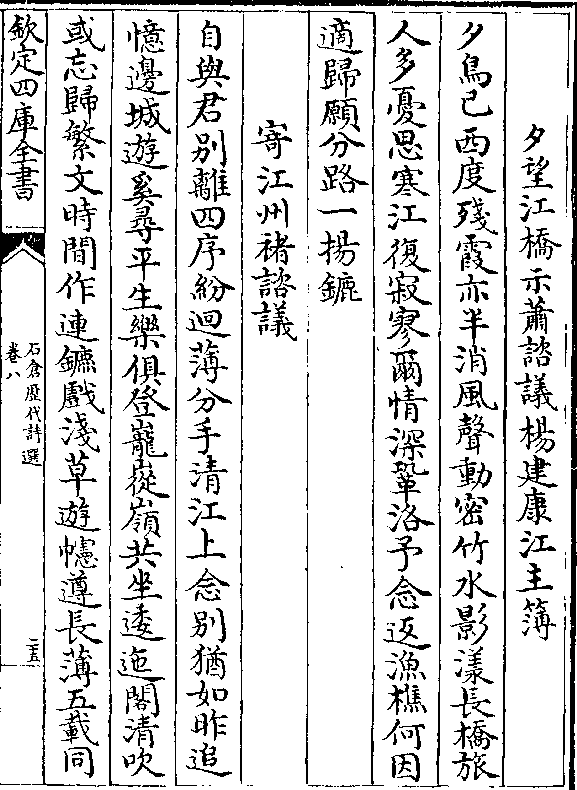 夕望江橋示蕭諮議楊建康江主簿
夕鳥已西度殘霞亦半消風聲動密竹水影漾長橋旅
人多憂思寒江復寂寥爾情深鞏洛予念返漁樵何因
適歸願分路一揚鑣
寄江州褚諮議
自與君別離四序紛迴薄分手清江上念別猶如昨追
憶邊城遊奚尋平生樂俱登巃嵸嶺共坐逶迤閣清吹
或忘歸繁文時間作連鑣戲淺草遊幰遵長薄五載同
欽定四庫全書
石倉歷代詩選
卷八
二五